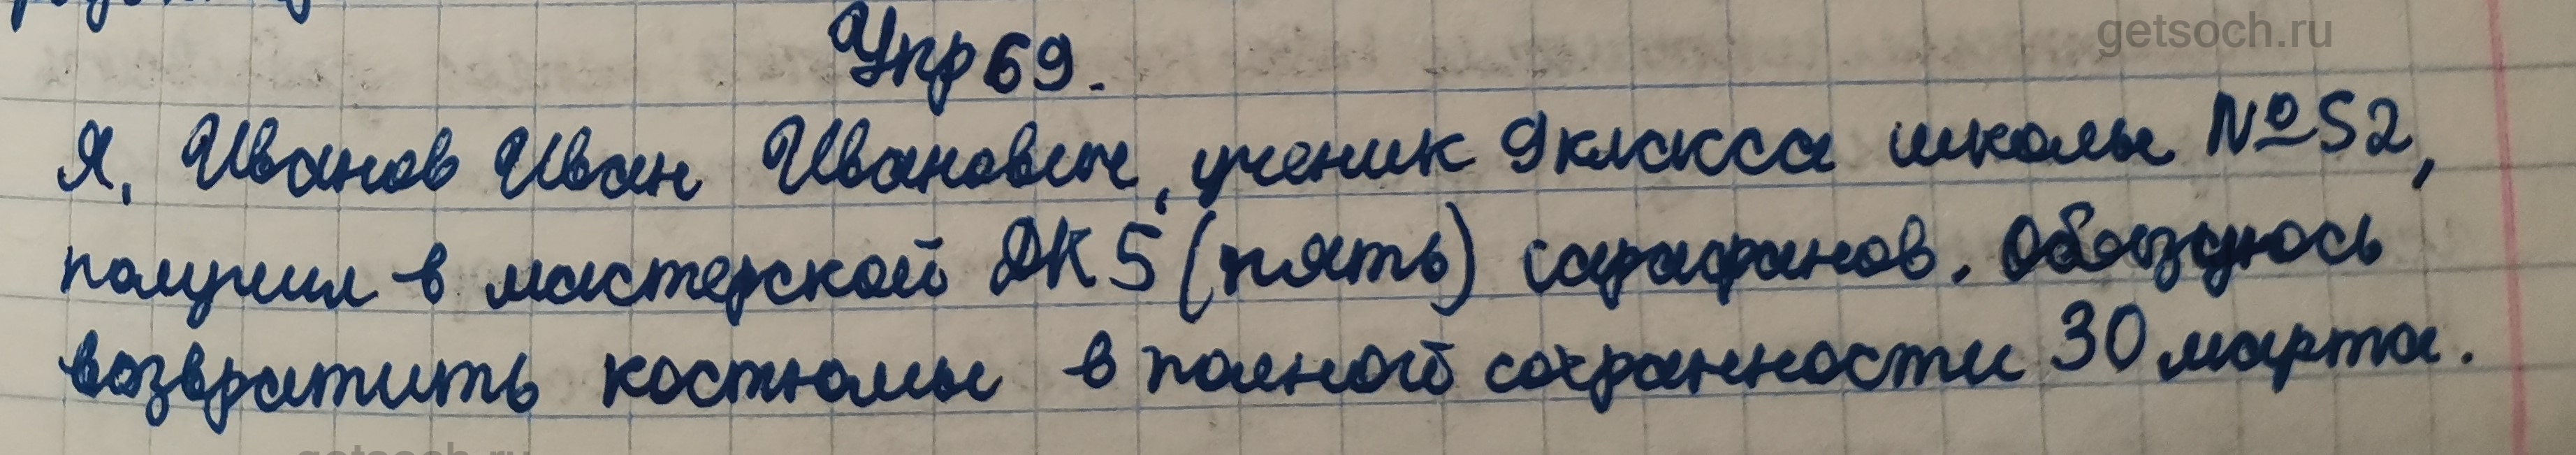 getsoch.ru
Упр 69.
Я, Иванов Иван Иванович, ученик 9 класса школы №52,
получил в мастерской ДК 5 (пять) сарафанов. Обязуюсь
возвратить костюмы в полной сохранности 30 марта.
getsoch.ru